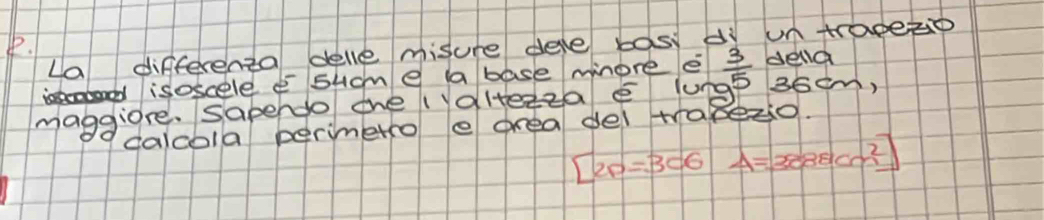 P.
La differenza delle misure delle basi di un trapezio
isoscele è 54cm e la base minore è 3/5 della
maggiore. Sapendo che l'altezza è lunga 36cm,
calcola perimetro e area del trapezio.
[2p=306 A=3888cm²]